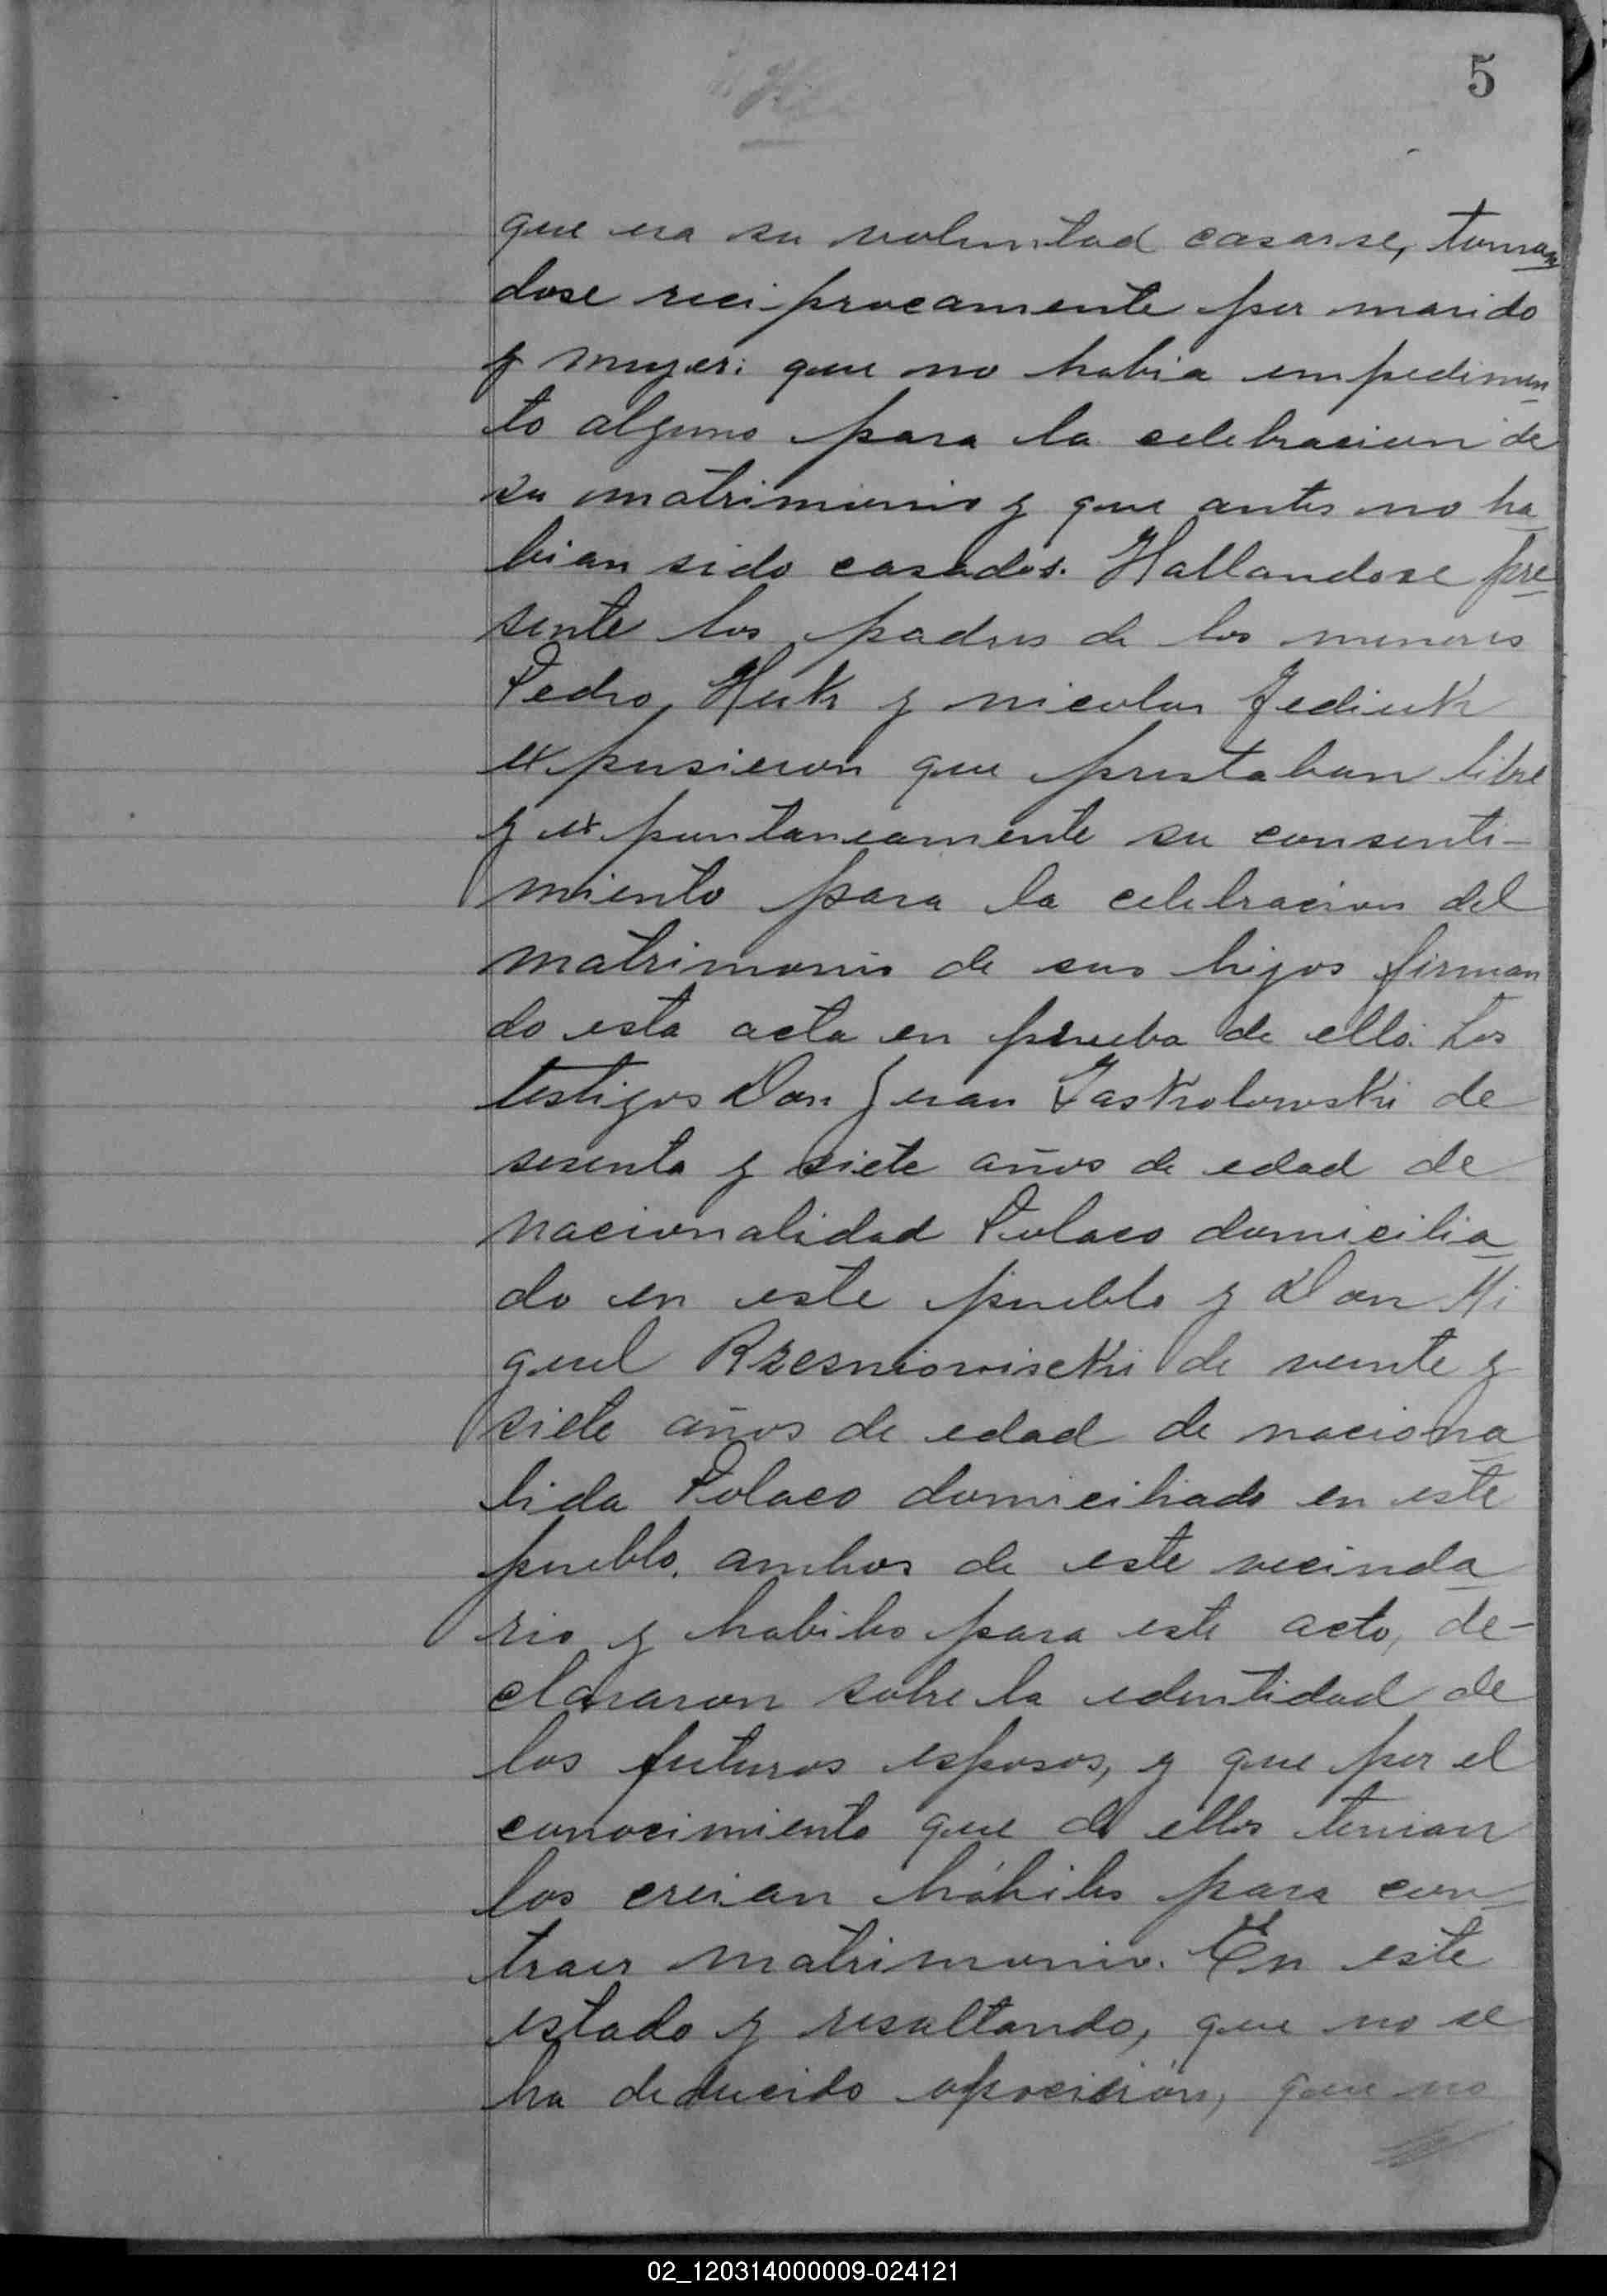 5
que era su voluntad casarse, toman
dose reciprocamente por marido
y mujer: que no habia impedimen
to alguno para la celebracion de
su matrimonio y que antes no ha
bian sido casados. Hallandose pre
sente los padres de los menores
Pedro Huk y nicolas Fediuk
expusieron que prestaban libre
y expontaneamente su consenti-
miento para la celebracion del
matrimonio de sus hijos firman
do esta acta en prueba de ello. Los
testigos Don Juan Jaskolowski de
sesenta y siete años de edad de
nacionalidad Polaco domicilia
do en este pueblo y Don Mi
guel Rzesniowiscki de veinte y
siete años de edad de naciona
lida Polaco domiciliado en este
pueblo, ambos de este vecinda
rio y habiles para este acto, de-
clararon sobre la identidad de
los futuros esposos, y que por el
conocimiento que de ellos tenian
los creian hábiles para con
traer matrimonio. En este
estado y resultando, que no se
ha deducido oposición, que no
02_120314000009-024121